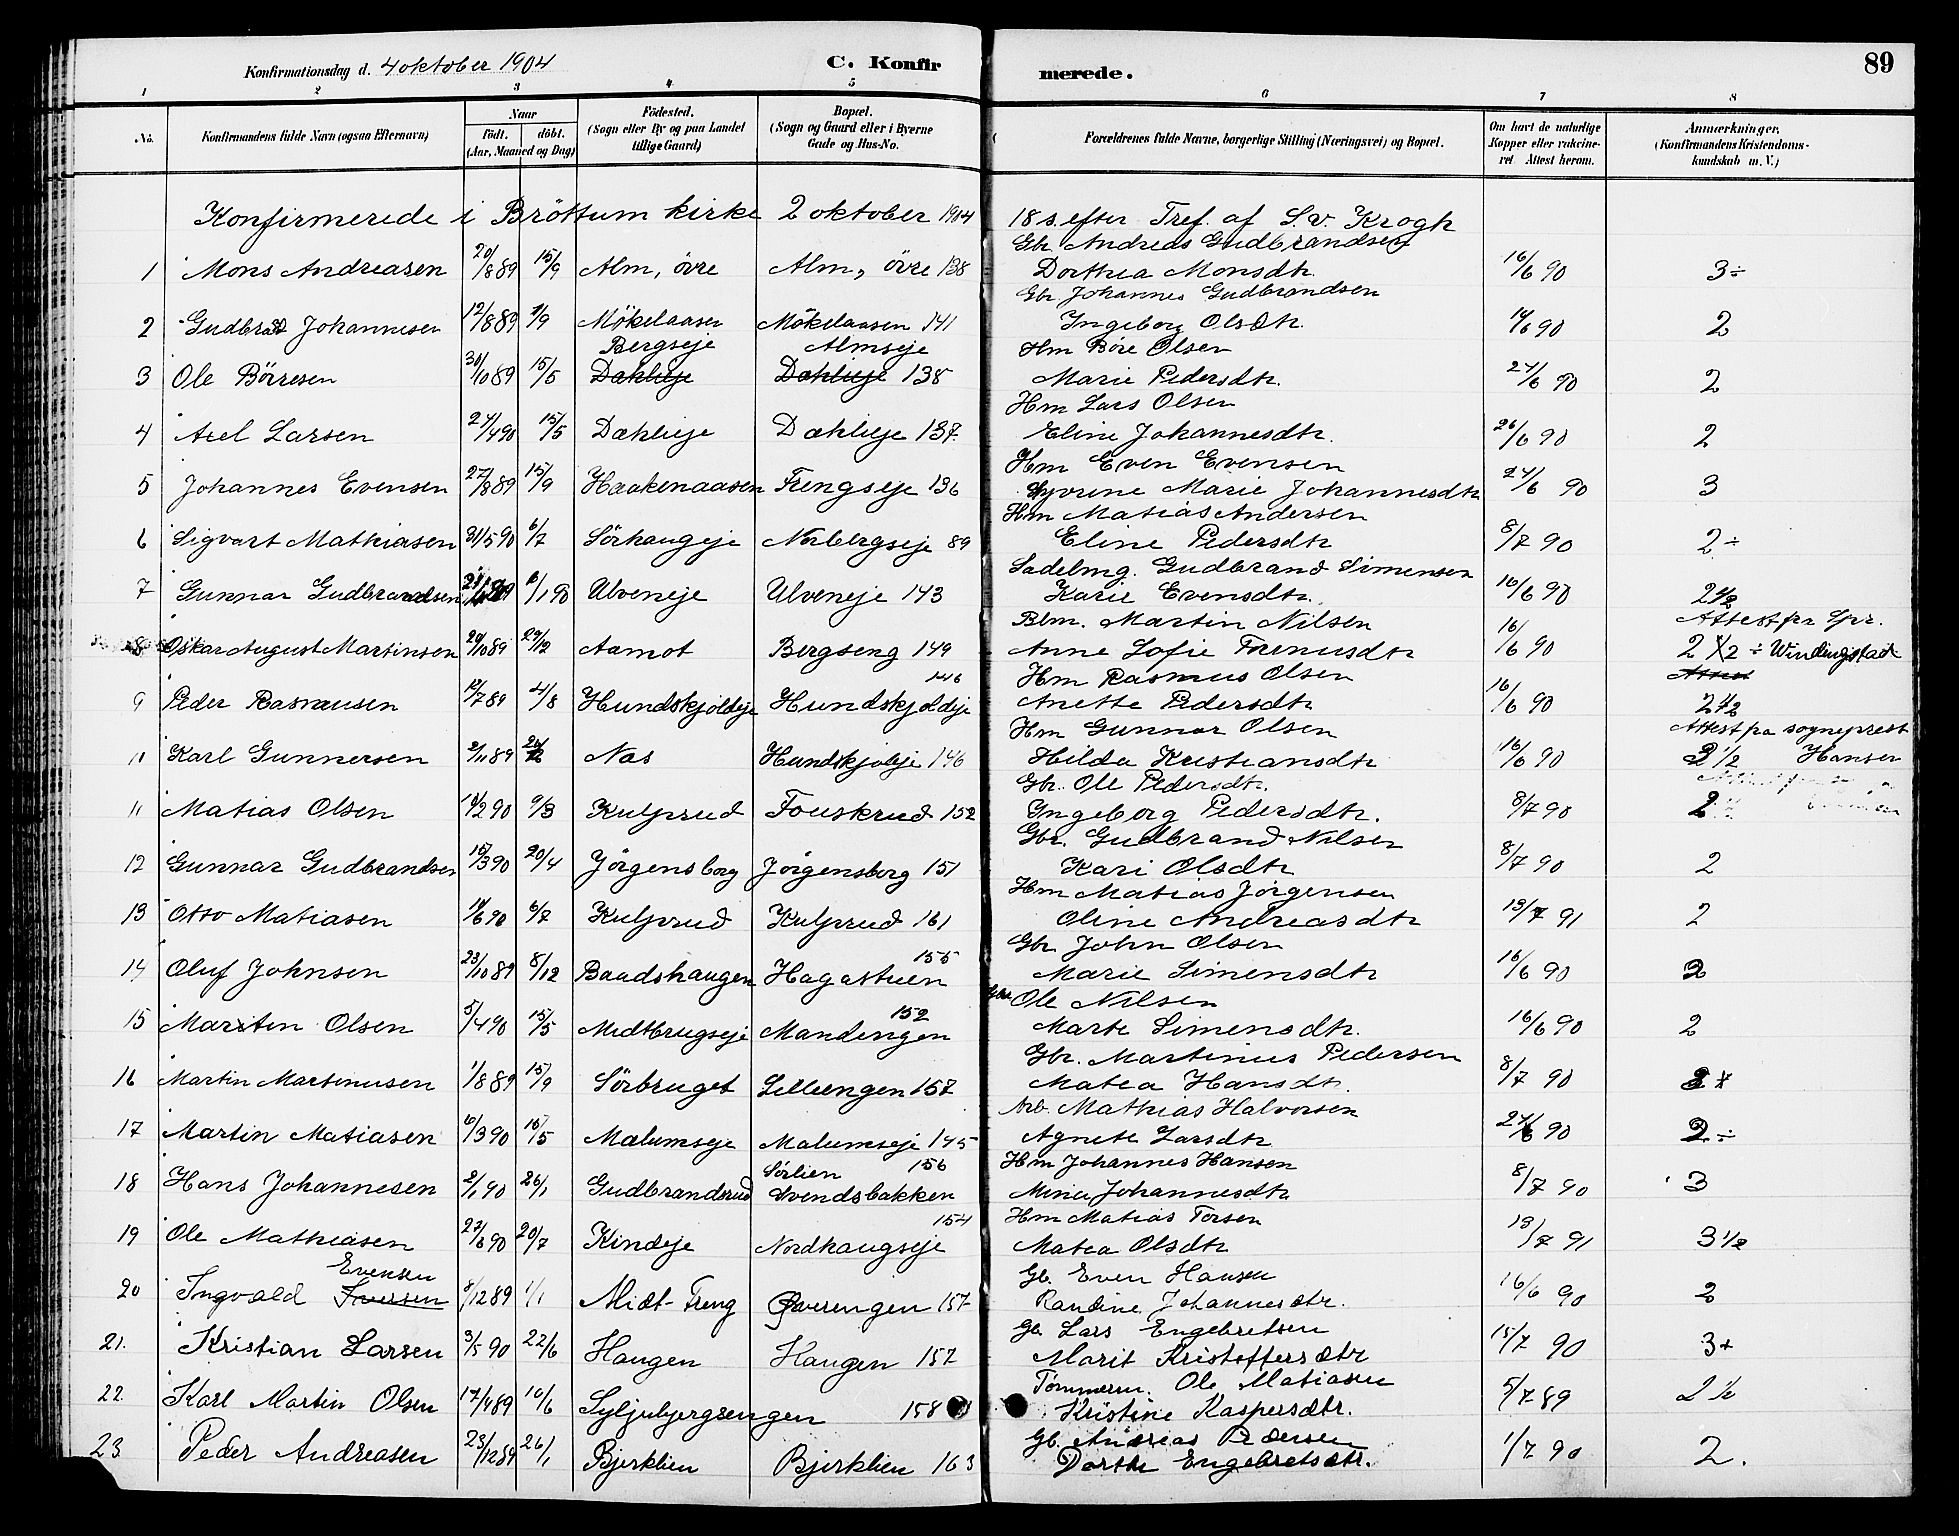 Konfirmationsdag d. 4 oktober 1904 C. Konfirmerede. 89
1 2 3 4 5 6 7 8
No. Konfirmandens fulde Navn (ogsaa Efternavn) Naar födt. döbt. (Aar, Maaned og Dag) Födested. (Sogn eller By og paa Landet tillige Gaard) Bopæl. (Sogn og Gaard eller i Byerne Gade og Hus-No. Forældrenes fulde Navne, borgerlige Stilling (Næringsvei) og Bopæl. Om havt de naturlige Kopper eller vakcineret Attest herom. Anmærkninger. (Konfirmandens Kristendomskundskab m. V.)
Konfirmerede i Bröttum kirke 2 oktober 1904 18 s. efter Tref. af S. v. Krogh
Gbr. Andreas Gudbrandsen
1 Mons Andreasen 20/8 89 15/9 Alm, övre Alm, övre 138 Dorthea Monsdtr. 16/6 90 3÷
Gbr. Johannes Gudbrandsen
2 Gudbrand Johannesen 12/8 89 1/9 Mökelaasen Mökelaasen 141 Ingeborg Olsdtr. 16/6 90 2
Bergseje Almseje Hm Böre Olsen
3 Ole Börresen 30/10 89 15/5 Dæhlieje Dæhlieje 138 Marie Pedersdtr. 24/6 90 2
Hm Lars Olsen
4 Axel Larsen 24/4 90 15/5 Dæhlieje Dæhlieje 137 Eline Johannesdtr. 26/6 90 2
Hm Even Evensen
5 Johannes Evensen 27/8 89 15/9 Haakenaasen Frengseje 136 Syverine Marie Johannesdtr 24/6 90 3
Hm Matias Andersen
6 Sigvart Mathiasen 31/5 90 6/7 Sörhaugeje Norbergseje 89 Eline Pedersdtr 8/7 90 2÷
Sadelmg. Gudbrand Simensen
7 Gunnar Gudbrandsen 6/1 90 Ulveneje Ulveneje 143 Karie Evensdtr. 16/6 90 2 1/2
Blm. Martin Nilsen Attest fra Spr.
8 Oskar August Martinsen 20/10 89 29/12 Aamot Bergseng 149 Anne Sofie 16/6 90 2 1/2 ÷ Windingstad
146 Hm Rasmus Olsen
9 Peder Rasmusen 12/7 89 4/8 Hundskjoldeje Hundskjoldeje Anette Pedersdtr 16/6 90 2 1/2
Hm Gunnar Olsen Attest fra sogneprest
10 Karl Gunnersen 2/11 89 Næs Hundskjoleje 146 Hilda Kristiansdtr 16/6 90 2 1/2 Hansen
Gbr. Ole Pedersdtr.
11 Matias Olsen 14/2 90 9/3 Kulprud Fouskrud 152 Ingeborg Pedersdtr. 8/7 90 2
Gbr. Gudbrand Nilsen
12 Gunnar Gudbrandsen 15/3 90 20/4 Jörgensborg Jörgensborg 151 Kari Olsdtr 8/7 90 2
Hm Matias Jörgensen
13 Otto Matiasen 14/6 90 6/7 Kulprud Kulprud 161 Oline Andreasdtr 13/7 91 2
155 Gbr. John Olsen
14 Oluf Johnsen 23/10 89 8/12 Baadshaugen Hagastuen Marie Simensdtr 16/6 90 2
152 Gbr Ole Nilsen
15 Morten Olsen 5/4 90 15/5 Midtbrugseje Mandengen Marte Simensdtr. 16/6 90 2
Gbr. Martinus Pedersen
16 Martin Martinusen 1/8 89 15/9 Sörbruget Lilleengen 157 Matea Hansdtr. 8/7 90
Arb. Mathias Halvorsen
17 Martin Matiasen 6/3 90 15/5 Mælumseje Mælumseje 145 Agnete Larsdtr 24/6 90 2÷
Sörlien 156 Hm Johannes Hansen
18 Hans Johannesen 2/1 90 26/1 Gudbrandsrud Svendsbakken Mina Johannesdtr 8/7 90 3
154 Hm Matias Torsen
19 Ole Mathiasen 27/6 90 20/7 Kindeje Nordhaugseje Matea Olsdtr 13/7 91 3 1/2
Evensen Gb. Even Hansen
20 Ingvald Iversen 8/12 89 1/1 Midt-Freng Qverengen 157 Randine Johannesdtr. 16/6 90 2
Gb. Lars Engebretsen
21. Kristian Larsen 3/5 90 22/6 Haugen Haugen 157 Marit Kristoffersdtr 15/7 90 3+
Tömmerm. Ole Matiasen
22 Karl Martin Olsen 17/4 89 10/6 Syljubjergsengen 158 Kristine Kaspersdtr. 5/7 89 2 1/2
Gb. Andreas Pedersen
23. Peder Andreasen 23/12 89 26/1 Bjerklien Bjerklien 163 Dorthe Engebretsdtr. 1/7 90 2.